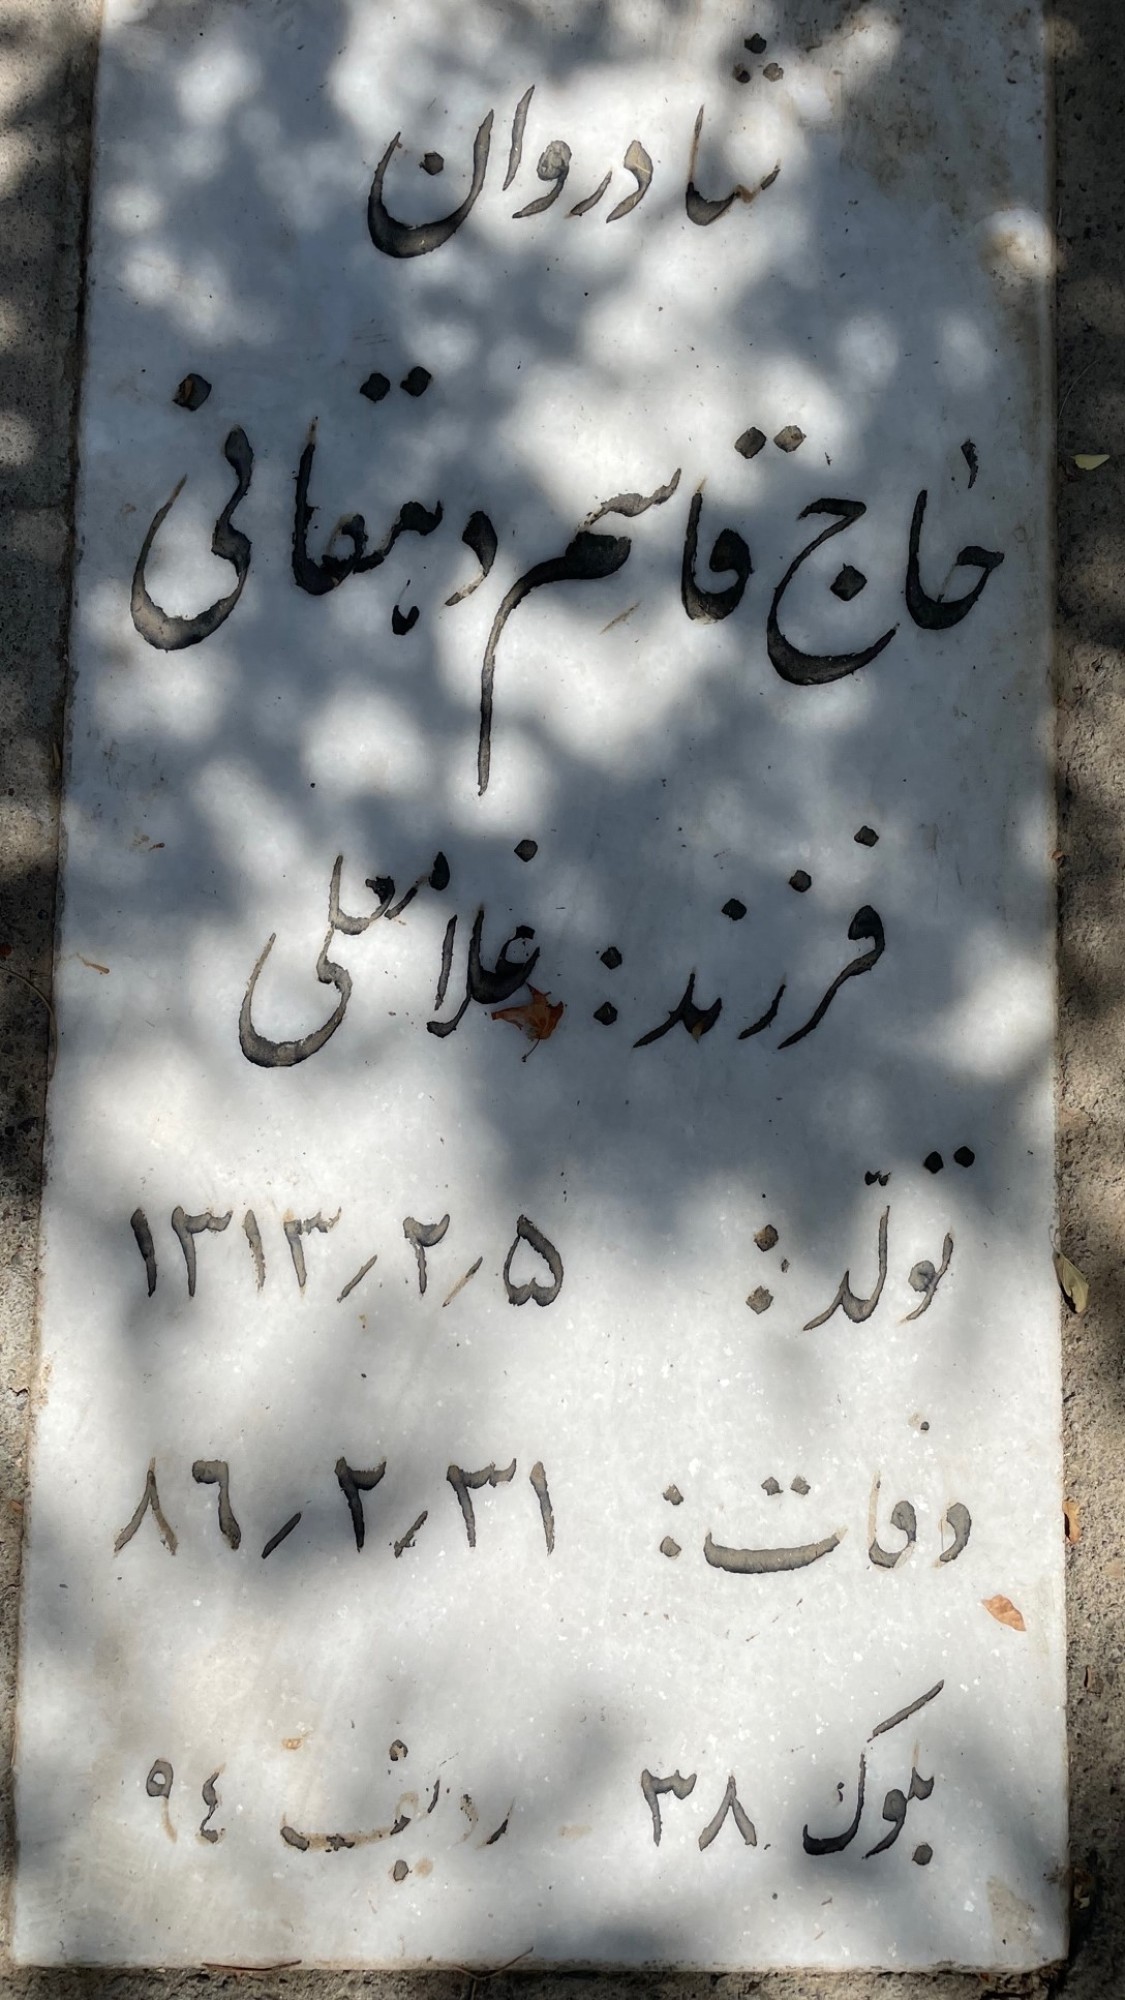 شادروان
حاج قاسم دهقانی
فرزند : غلامعلی
تولّد : ۱۳۱۳/۲/۵
وفات : ۸٦/۲/۳۱
بلوک ۳۸ ردیف ۹٤